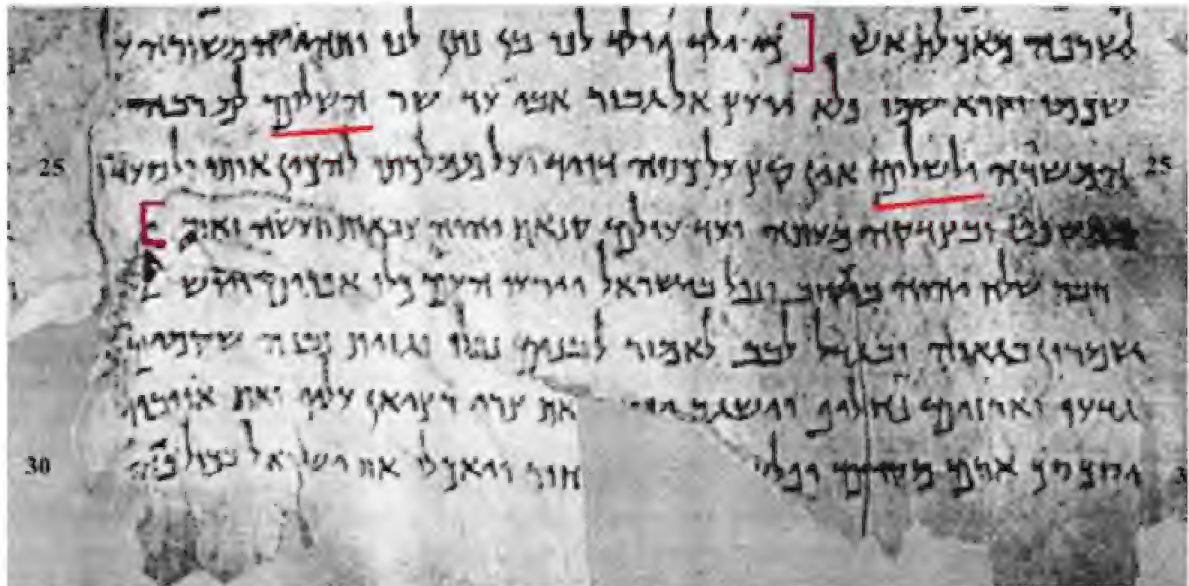 לשרפה מאכלת אש ] כי ילד יולד לנו בן נתן לנו ותהי המשורה על
שכמו וקרא שמו פלא יועץ אל גבור אבי עד שר השלום לםרבה
25 המשורה ולשלום אין קץ על כסה דויד ועל ממלכתו להכין אותו ולסעדה 25
במשפט ובצדקה מעתה ועד עולם קנאת יהוה צבאות תעשה זואת [
דבר שלח יהוה ביעקוב ונפל בישראל וידעו העם כולו אפרים
שמרון בגאוה ובגדל לבב לאמור לבנים נפלו וגזית נבנה שקמים
גדעו וארזים נחליף וישגב את צרי רצין עליו ואת אויביו
30 ארם מקדם ופל חור ויאכלו את ישראל בכול פה 3